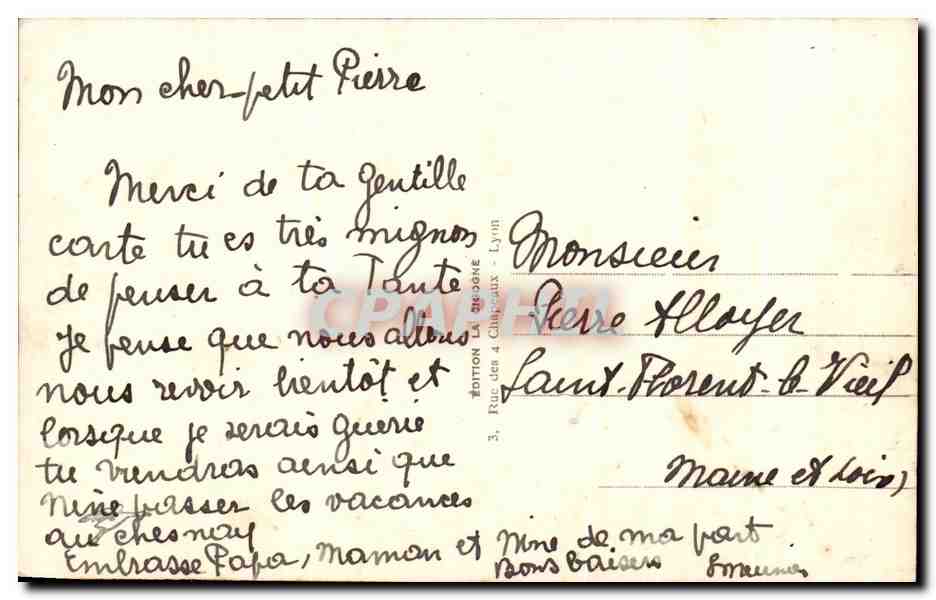 Mon cher petit Pierre
Merci de ta gentille
carte tu es très mignon
de penser à ta Tante
je pense que nous allons
nous revoir bientôt et
lorsque je serais guérie
tu viendras ainsi que
Nine passer les vacances
au chesnay
Embrasse Papa, Maman et Nine de ma part
Bons baisers
ÉDITION LA CIGOGNE
3, Rue des 4 Chapeaux - Lyon
Monsieur
Pierre Alloyer
Saint-Florent-le-Vieil
Maine et Loire)
CPARHTI